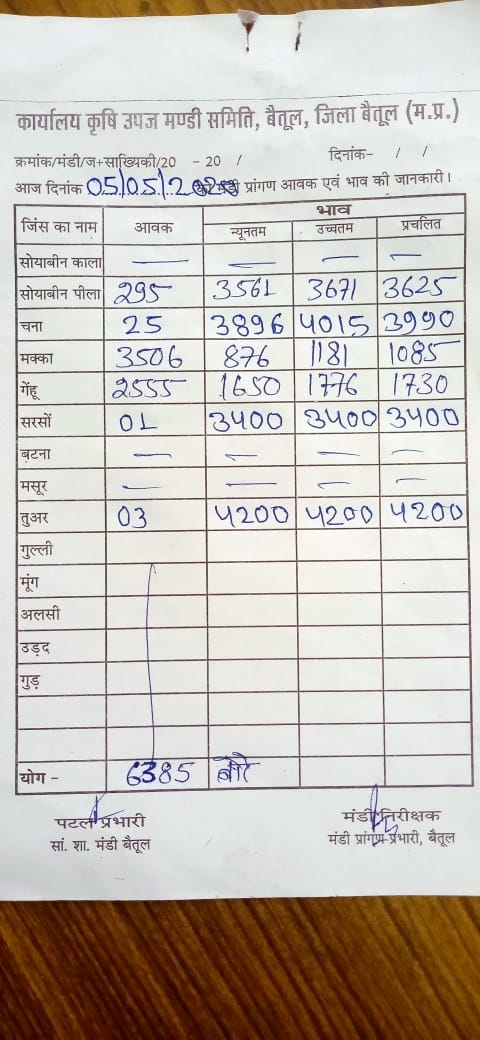 कार्यालय कृषि उपज मण्डी समिति, बैतूल, जिला बैतूल (म.प्र.)
क्रमांक/मंडी/ज+साख्यिकी/20 - 20 / दिनांक- / /
आज दिनांक 05/05/2020 प्रांगण आवक एवं भाव की जानकारी।
भाव
जिंस का नाम आवक न्यूनतम उच्चतम प्रचलित
सोयाबीन काला — — — —
सोयाबीन पीला 295 3561 3671 3625
चना 25 3896 4015 3990
मक्का 3506 876 1181 1085
गेंहू 2555 1650 1776 1730
सरसों 01 3400 3400 3400
बटना — — — —
मसूर — — — —
तुअर 03 4200 4200 4200
गुल्ली
मूंग
अलसी
उड़द
गुड़
योग - 6385 बोरे
पटल प्रभारी मंडी निरीक्षक
सां. शा. मंडी बैतूल मंडी प्रांगण प्रभारी, बैतूल